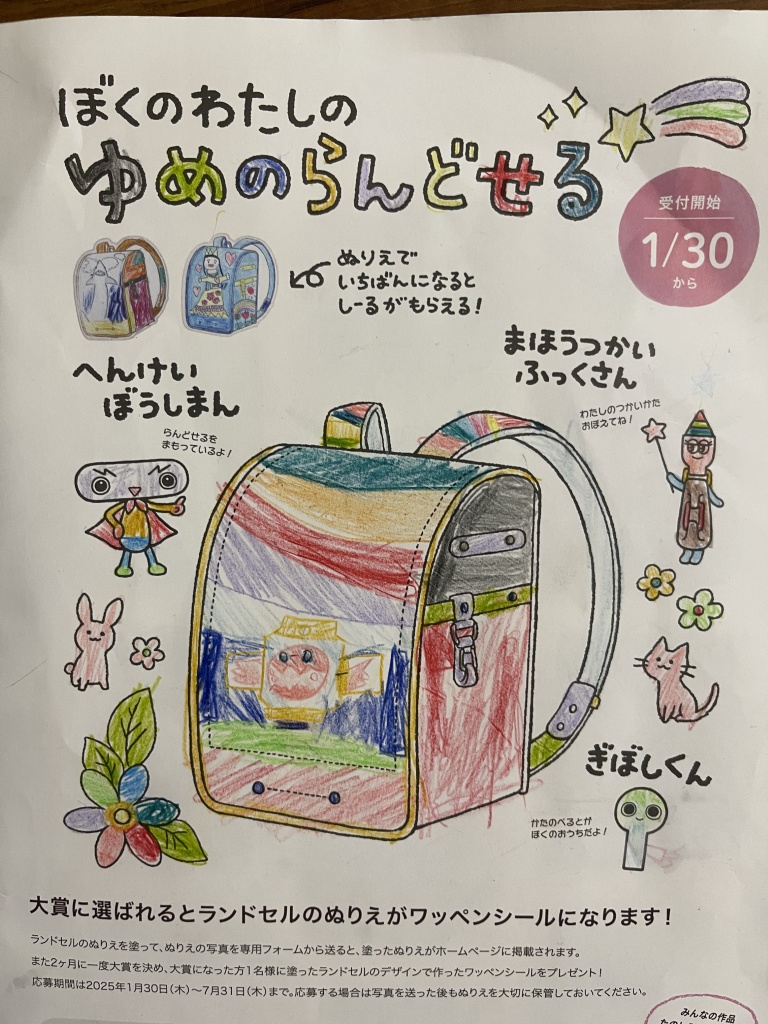 ぼくのわたしの
ゆめのらんどせる
受付開始
1/30
から
ぬりえで
いちばんになると
しーるがもらえる!
へんけい
ぼうしまん
らんどせるを
まもっているよ!
まほうつかい
ふっくさん
わたしのつかいかた
おぼえてね!
ぎぼしくん
かたのべるとが
ぼくのおうちだよ!
大賞に選ばれるとランドセルのぬりえがワッペンシールになります!
ランドセルのぬりえを塗って、ぬりえの写真を専用フォームから送ると、塗ったぬりえがホームページに掲載されます。
また2ヶ月に一度大賞を決め、大賞になった方1名様に塗ったランドセルのデザインで作ったワッペンシールをプレゼント!
応募期間は2025年1月30日(木)〜7月31日(木)まで。応募する場合は写真を送った後もぬりえを大切に保管しておいてください。
みんなの作品